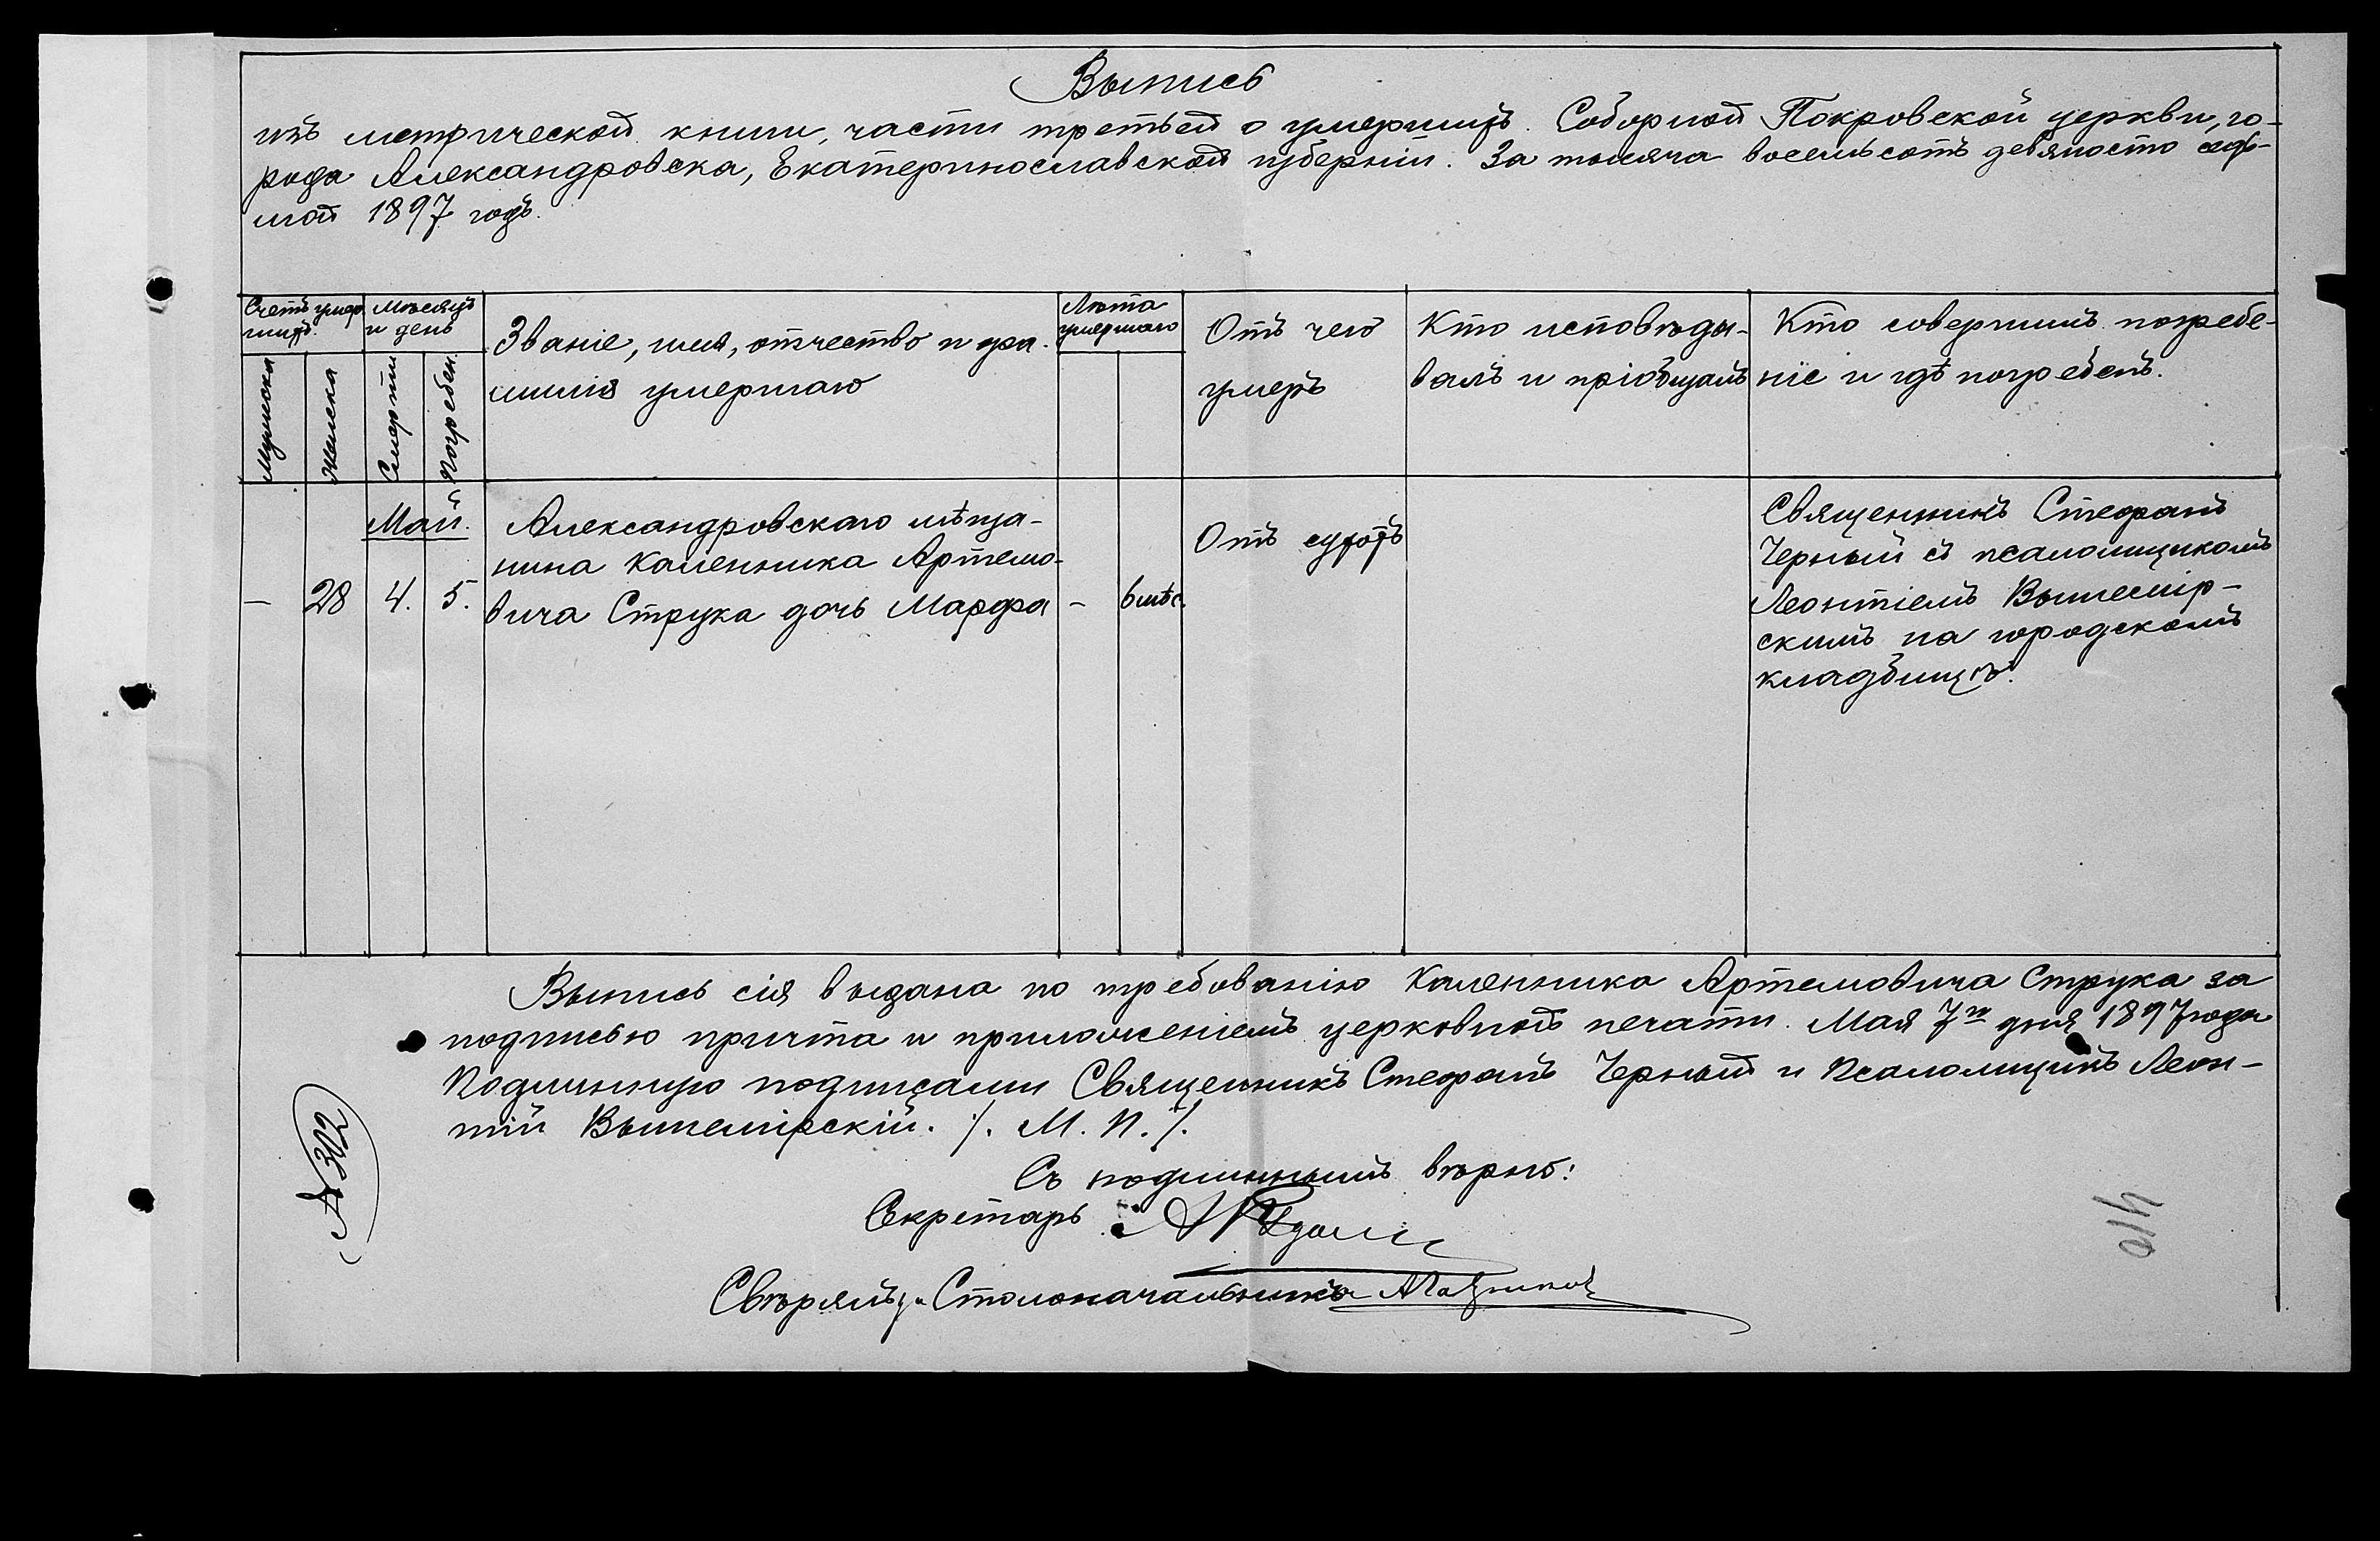 Выпись
изъ метрической книги, части третьей о умершихъ. Соборной Покровской церкви, го-
рода Александровска, Екатеринославской губерніи. За тысяча восемьсотъ девяносто седь-
мой 1897 годъ.
Счетъ умер
шихъ.
Мужска
Женска
Мѣсяцъ
и день
Смерти
Погребен.
Званіе, имя, отчество и фа-
милія умершаго
Лѣта
умершаго
Отъ чего
умеръ
Кто исповѣды-
валъ и пріобщалъ
Кто совершилъ погребе-
ніе и гдѣ погребенъ.
Май.
— 28 4. 5.
Александровскаго мѣща-
нина Каленника Артемо-
вича Струка дочь Марфа
— 6 мѣс.
Отъ
Священникъ Стефанъ
Черный съ псаломщикомъ
Леонтіемъ Вышемір-
скимъ на городскомъ
кладбищѣ.
Выпись сія выдана по требованію Каленника Артемовича Струка за
подписью причта и приложеніемъ церковной печати. Мая 7го дня 1897 года
Подлинную подписали Священникъ Стефанъ Черный и Псаломщикъ Леон-
тій Вышемірскій. /. М. П. /.
Съ подлиннымъ вѣрно:
Секретарь
Свѣрялъ: Столоначальникъ
№ 302
410